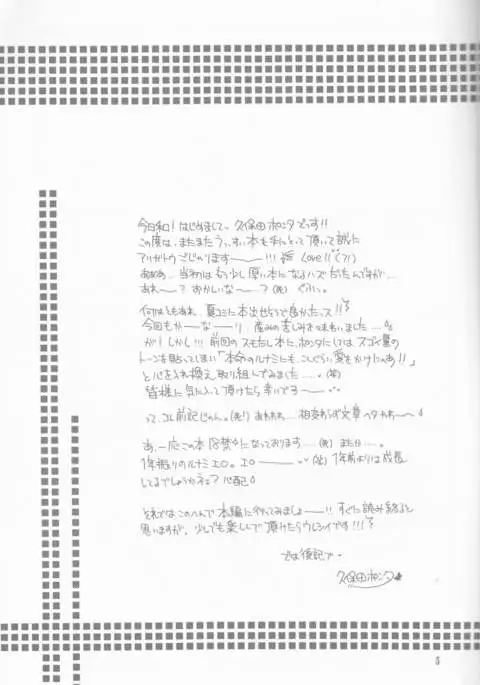 今日和！はじめまして〜久保田ホンタでっす!!
この度は、またまたうっすい本を手にとって頂いて誠に
アリガトウござります〜〜!!! Love!!（?!）
ああぁ…当初はもう少し厚い本になるハズだったんですが…
あれ〜？おかしいな〜？（死）ぐふぅ。
何はともあれ、夏コミに本出せそうで良かったっス!!
今回もかーなーり産みの苦しみを味わいました…
が！しかし!!! 前回のスモだし本に、ホンタにしてはスゴイ量の
トーンを貼ってしまい「本命のルナミにも、こんぐらい愛をかけたれよ!!」
と心を入れ換え取り組んでみました…（笑）
皆様に気に入って頂けたら幸いでる〜
って、コレ前記じゃん。（死）あわわわ…相変わらず文章ヘタだわ〜
あ、一応この本18禁かになっております…（死）またか…。
1年振りのルナミエロ。エロ〜〜（爆）1年前よりは成長
してるでしょうかネェ？心配
それではこのへんで本編に行ってみましょー!!! すぐに読み終ると
思いますが、少しでも楽しんで頂けたらウレシイです!!!
では後記でー
久保田ホンタ
5